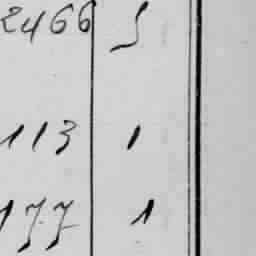 2466 S
113 1
177 1